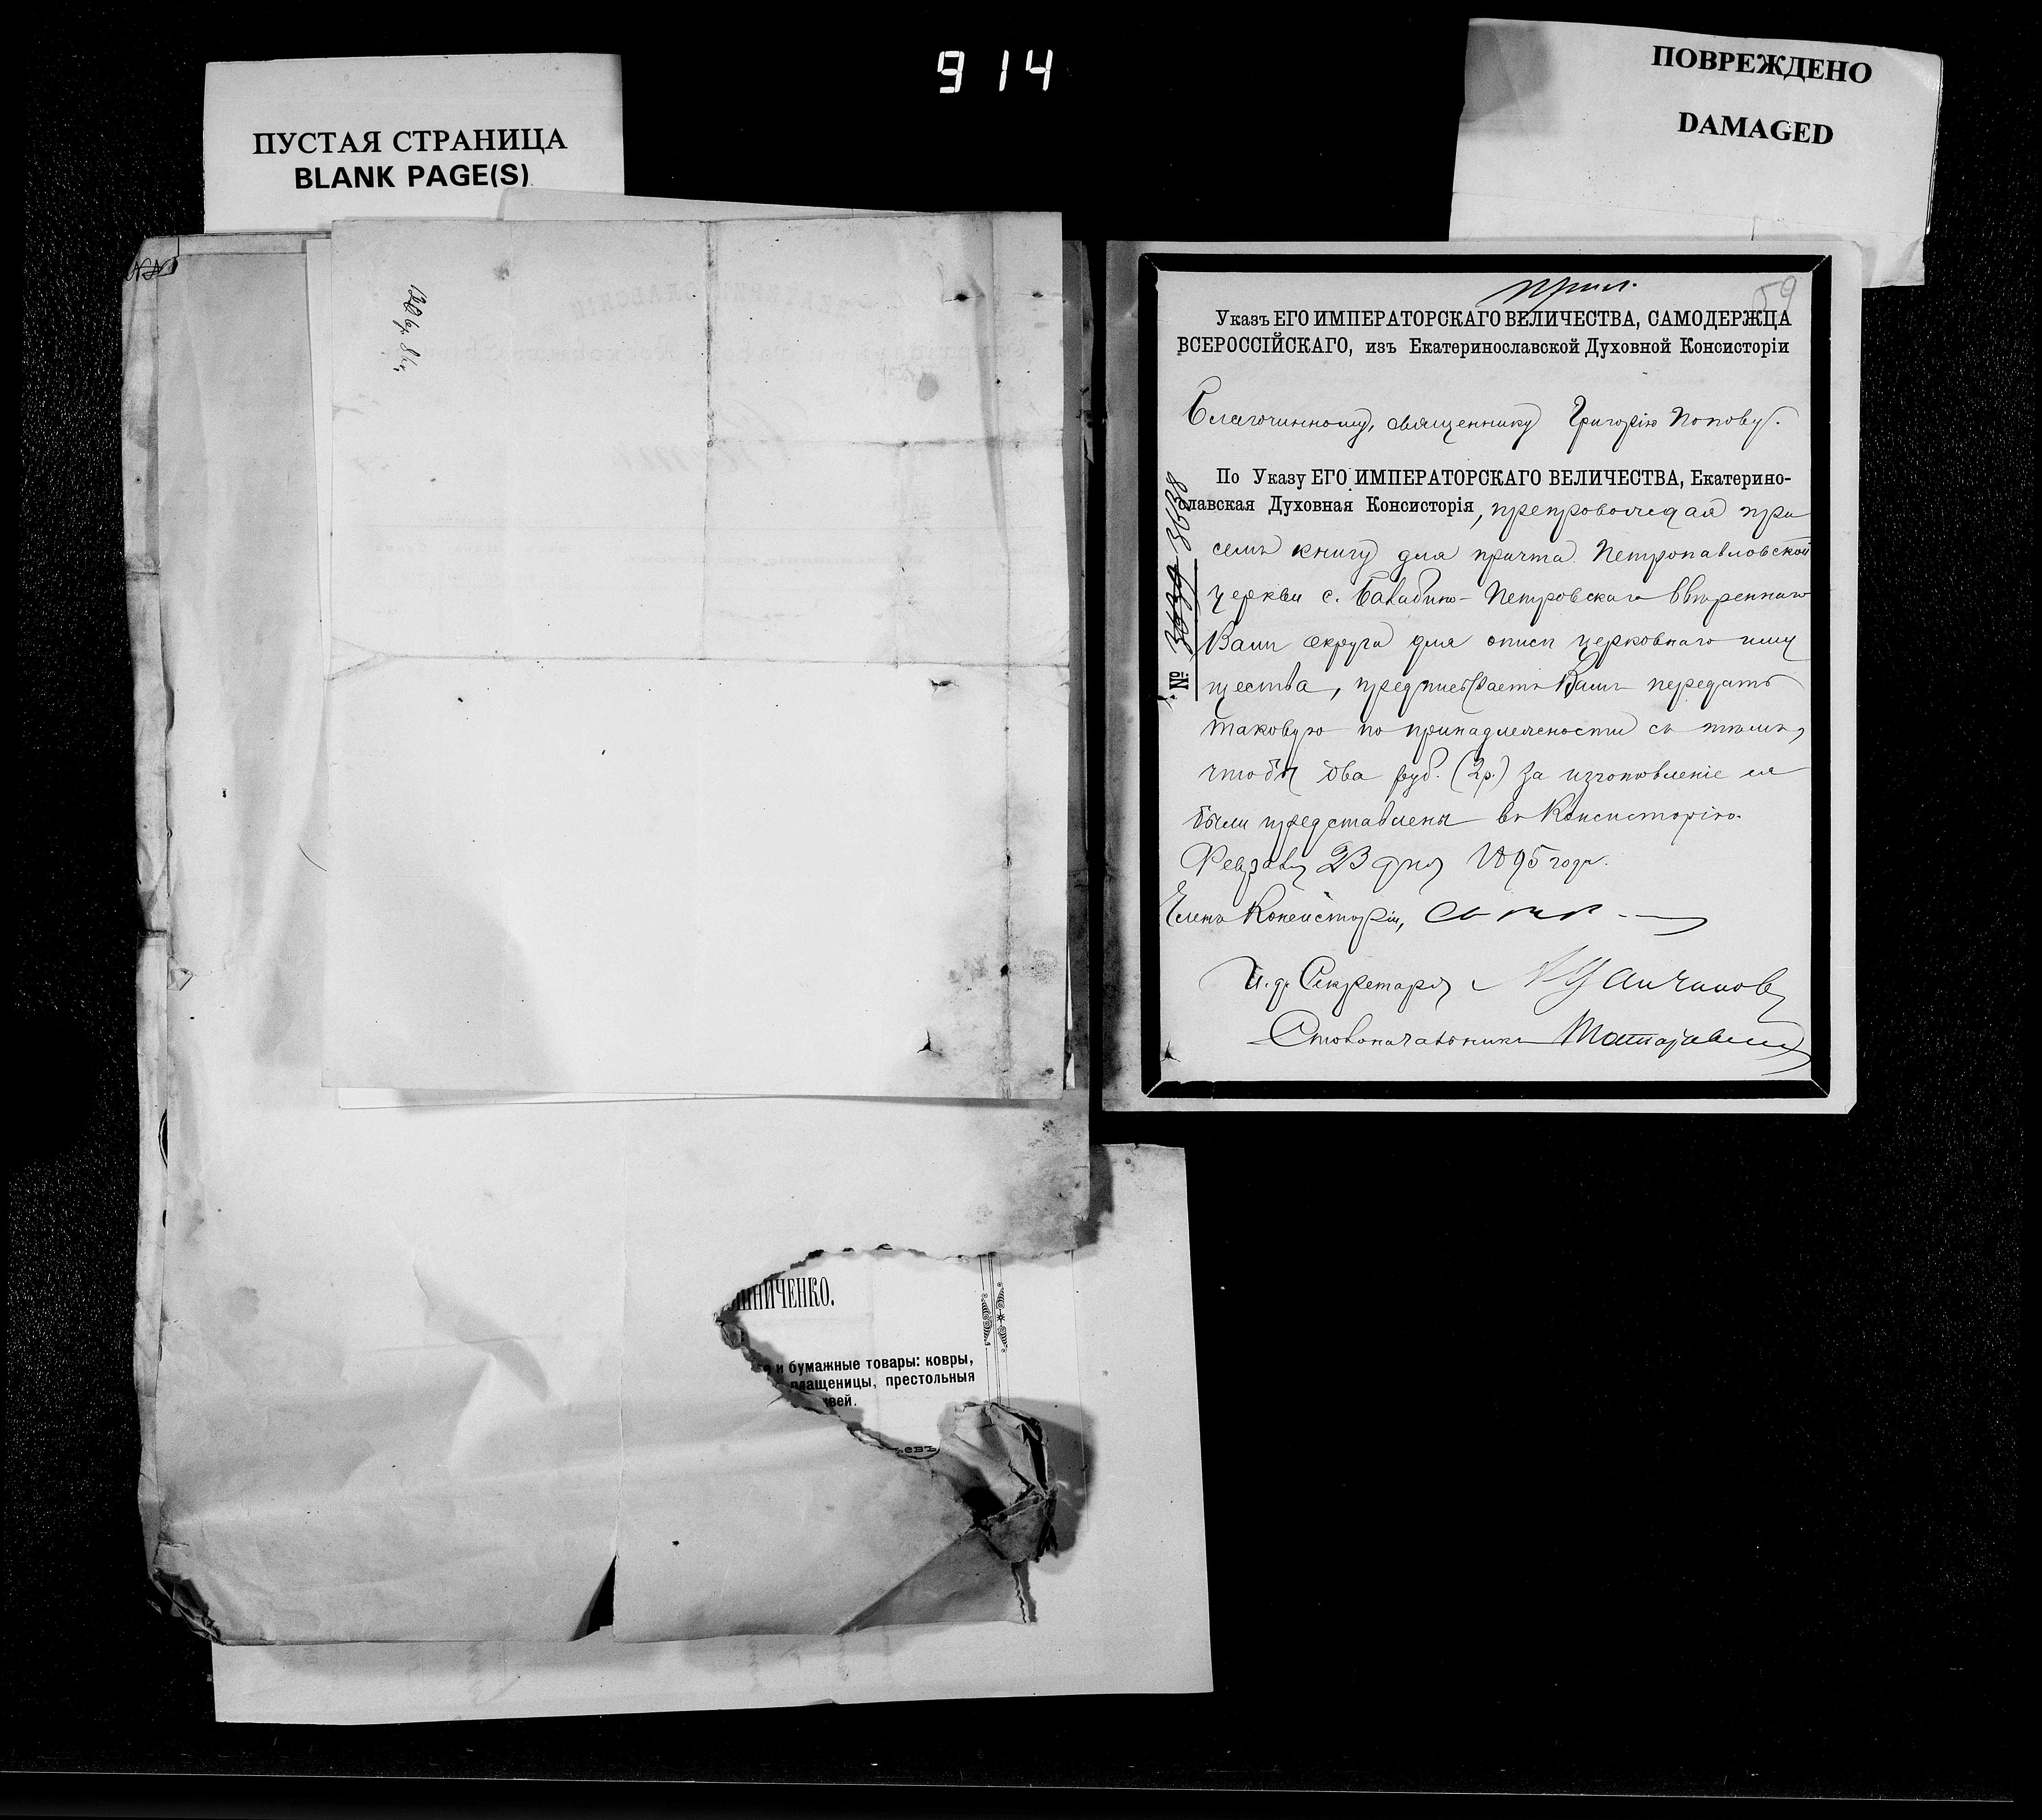 914
ПУСТАЯ СТРАНИЦА
BLANK PAGE(S)
ПОВРЕЖДЕНО
DAMAGED
59
Указъ ЕГО ИМПЕРАТОРСКАГО ВЕЛИЧЕСТВА, САМОДЕРЖЦА
ВСЕРОССІЙСКАГО, изъ Екатеринославской Духовной Консисторіи
Благочинному, священнику Григорію Попову.
По Указу ЕГО ИМПЕРАТОРСКАГО ВЕЛИЧЕСТВА, Екатерино-
славская Духовная Консисторія, препровождая при
семъ книгу для причта Петропавловской
церкви с. Петровскаго ввѣреннаго
Вамъ округа для описи церковнаго иму
щества, предписываетъ Вамъ передать
таковую по принадлежности съ тѣмъ,
чтобы два руб. (2 р.) за изготовленіе ея
были представлены въ Консисторію.
Февраля 23 дня 1895 года.
Членъ Консисторіи,
И. д. Секретаря
Столоначальникъ
№ 3638
ИНИЧЕНКО.
и бумажные товары: ковры,
плащеницы, престольныя
вей.